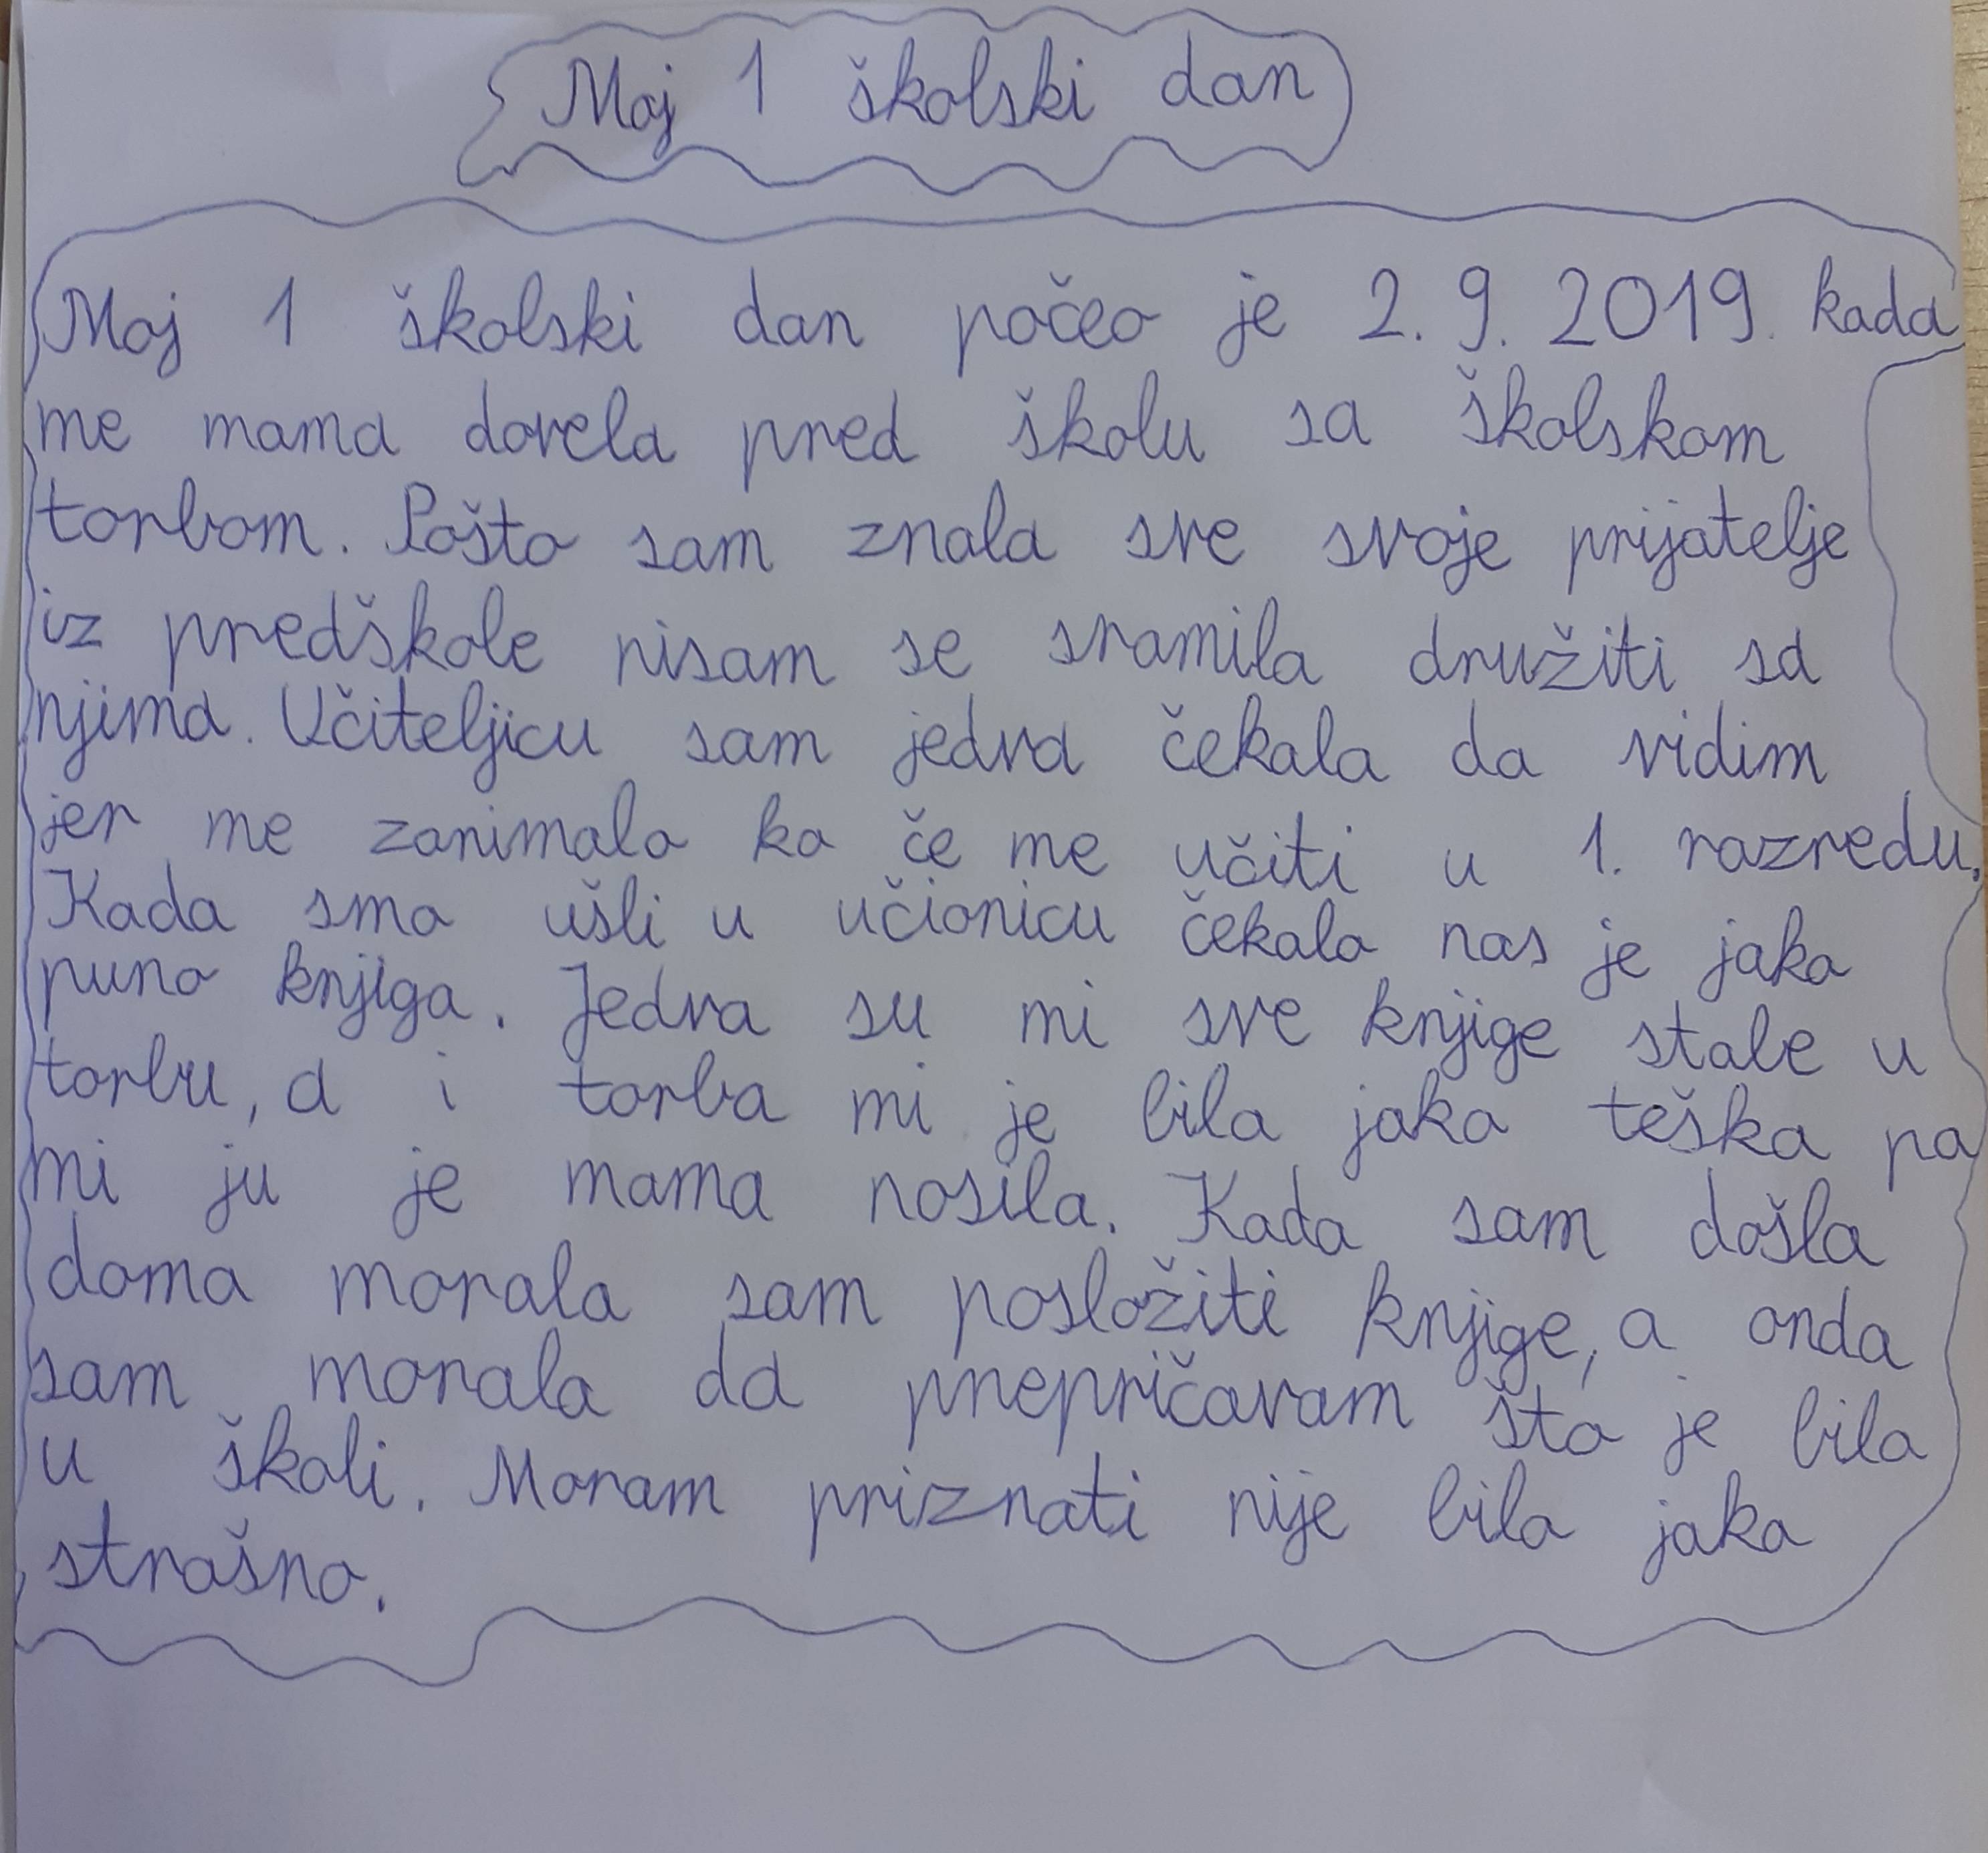 Moj 1 školski dan
Moj 1 školski dan počeo je 2. 9. 2019. kada
me mama dovela pred školu sa školskom
torbom. Pošto sam znala sve svoje prijatelje
iz predškole nisam se sramila družiti sa
njima. Učiteljicu sam jedva čekala da vidim
jer me zanimalo ko če me učiti u 1. razredu.
Kada smo ušli u učionicu čekalo nas je jako
puno knjiga. Jedva su mi sve knjige stale u
torbu, a i torba mi je bila jako teška pa
mi ju je mama nosila. Kada sam došla
doma morala sam posložiti knjige, a onda
sam morala da prepričavam što je bilo
u školi. Moram priznati nije bilo jako
strašno.